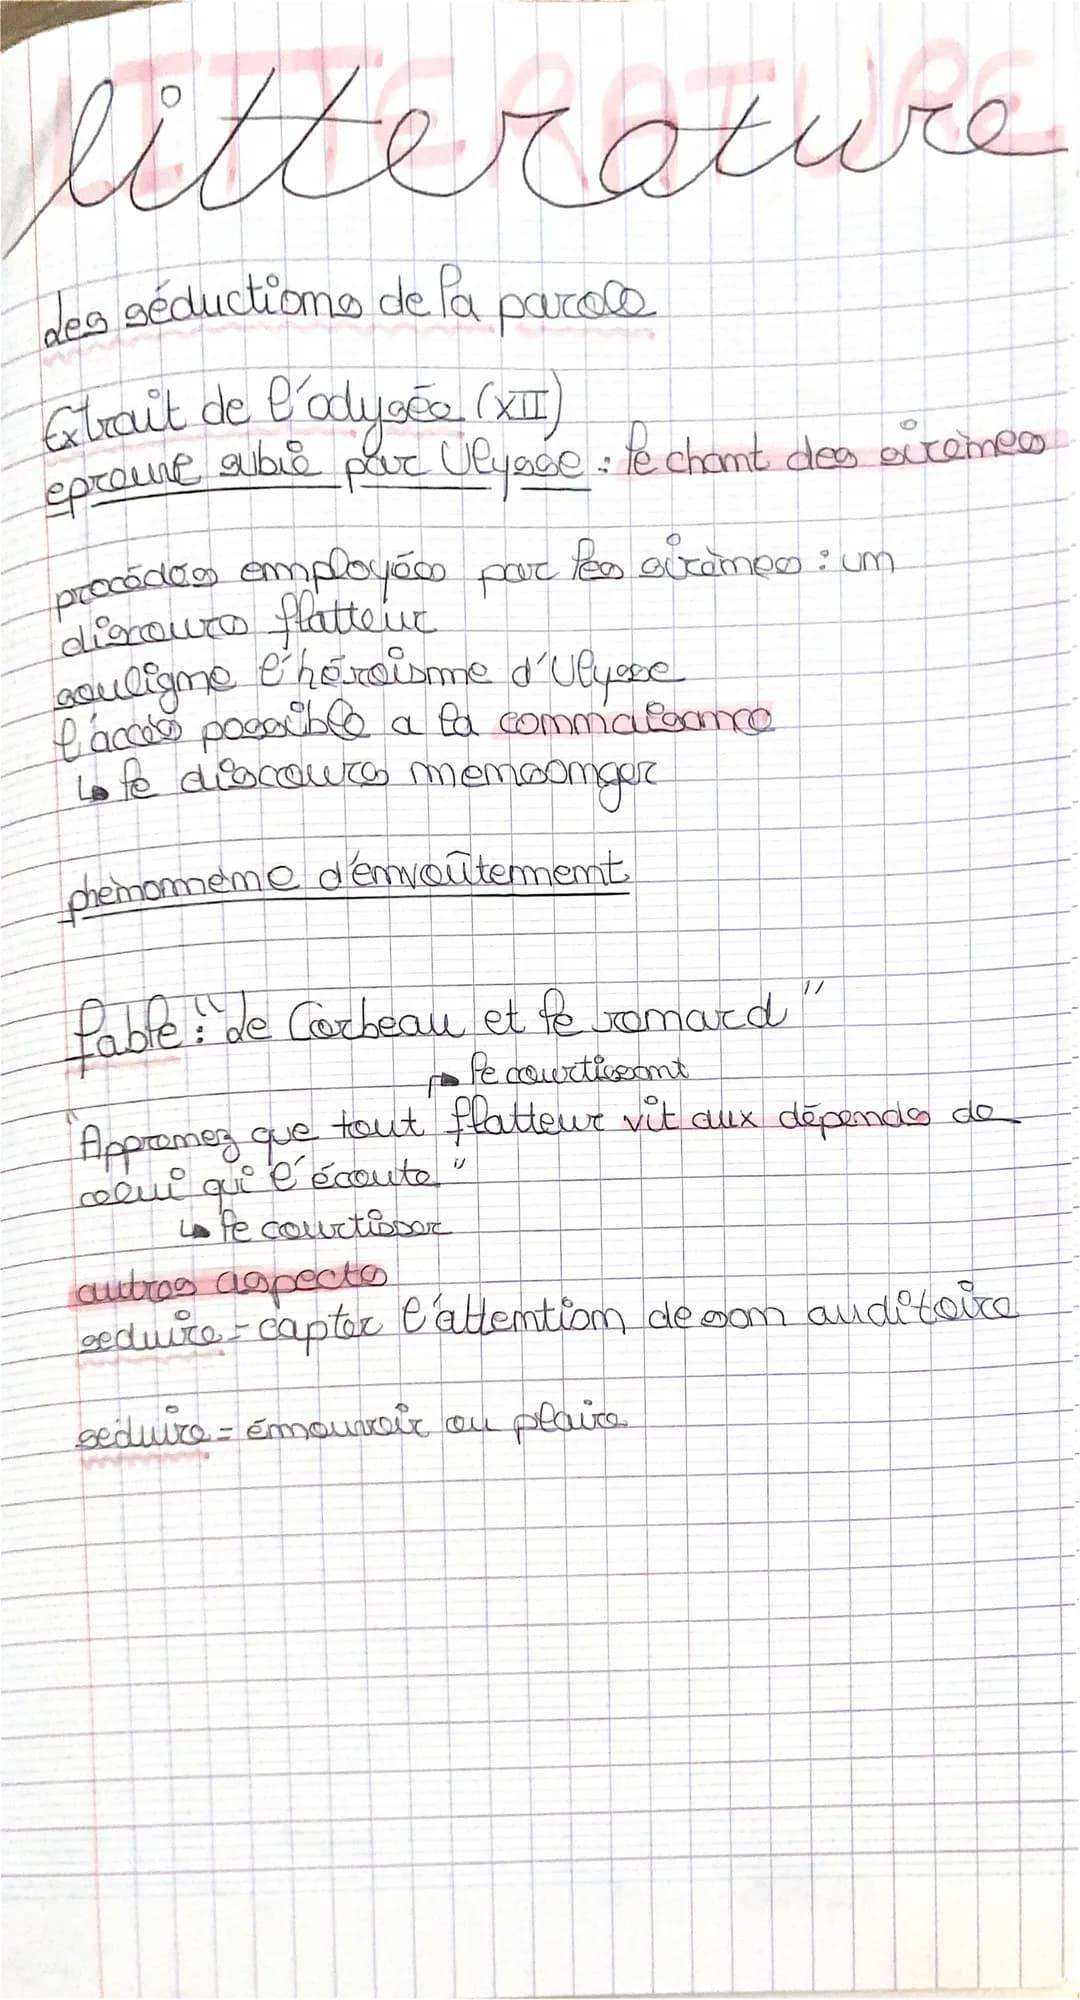 LITTERATURE
litterature
des séductions de la parole
Extrait de l'odyssée (XII)
eprouve subie par Ulysse : le chant des sirenes
procédés employés par les sirènes : un
discours flatteur
souligne l'héroïsme d'Ulysse
l'accés possible a la connaissance
↳ le discours mensonger
phénomène d'envoûtement
fable : "de Corbeau et le renard"
↱ le courtisant
"Apprenez que tout flatteur vit aux dépends de
celui qui l'écoute"
↳ le courtiser
autres aspects
seduire - capter l'attention de son auditoire
séduire = émouvoir ou plaire